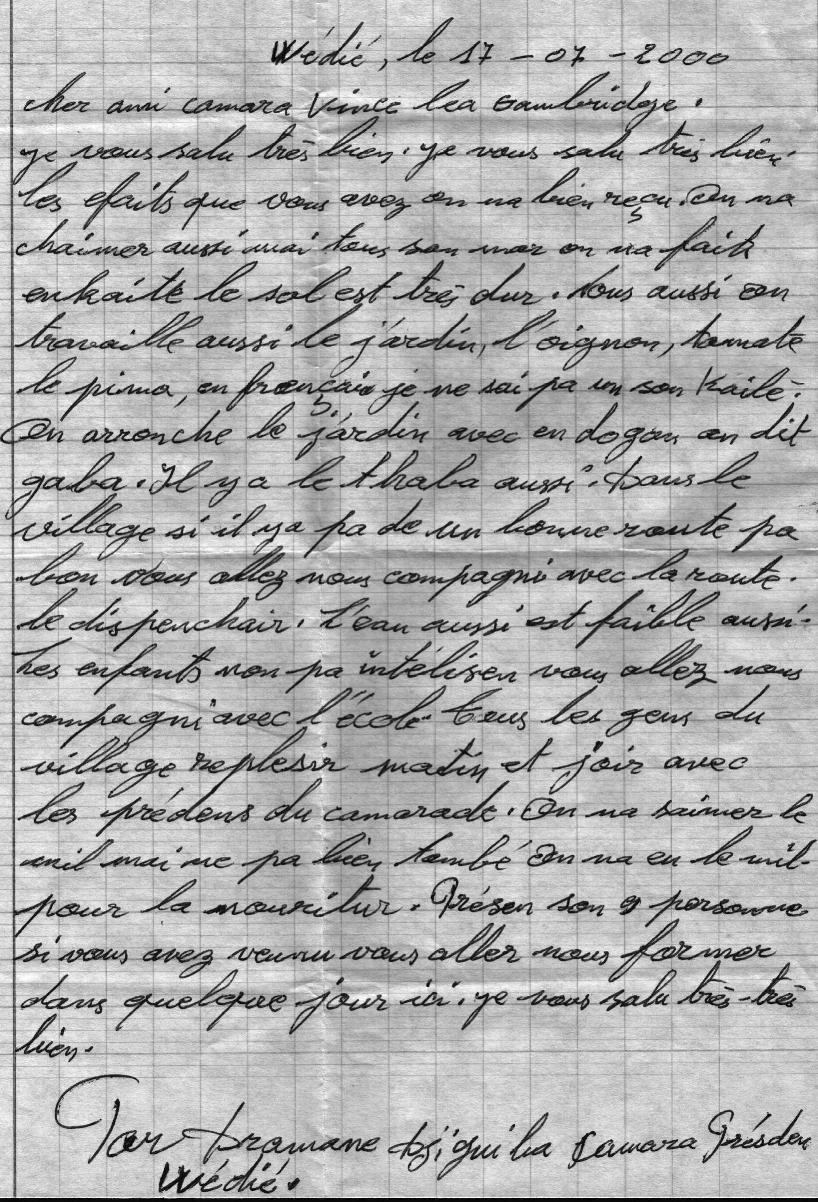 Wédié, le 17 - 07 - 2000
cher ami camara Vince lea Cambridge.
je vous salu très bien. je vous salu très bien
les efaits que vous avez on na bien reçu. On na
chaimer aussi mai tous son mar on na faits
enkaité le sol est très dur. Nous aussi on
travaille aussi le jardin, l'oignon, tomate
le pima, en français je ne sai pa un son kailé.
On arronche le jardin avec en dogon on dit
gaba. Il y a le thaba aussi. Dans le
village si il ya pa de un bonne route pa
bon vous allez nous compagni avec la route.
le dispenchair. L'eau aussi est faible aussi.
Les enfants non pa intélisen vous allez nous
compagni avec l'école tous les gens du
village replesir matin et joir avec
les prédens du camarade. On na saimer le
mil mai ne pa bien tombé On na eu le mil
pour la nouritur. Présen son 9 personne
si vous avez veunu vous aller nous former
dans quelque jour ici. je vous salu très-très
bien.
Par Dramane Djiguiba Camara Présden
Wédié.